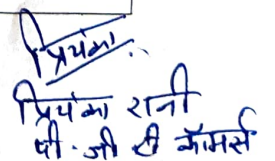 प्रियंका
प्रियंका रानी
पी.जी टी कॉमर्स